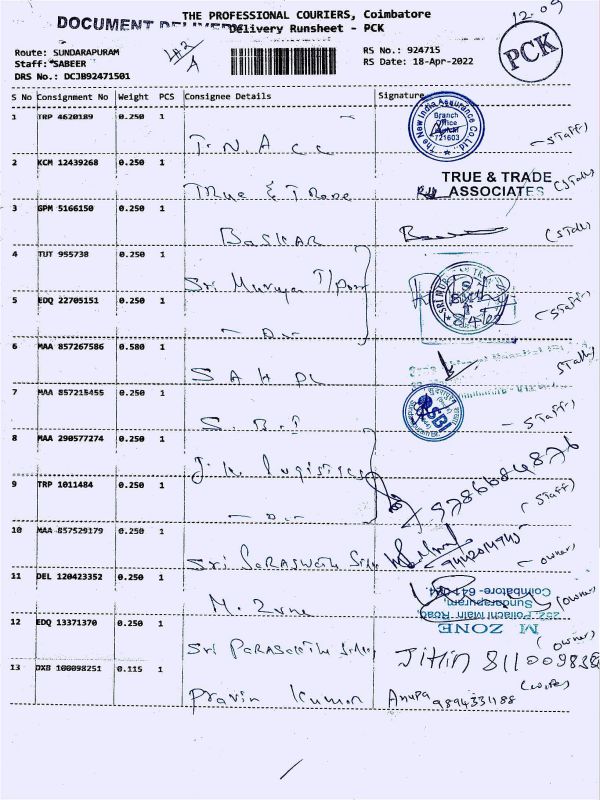 12.09
THE PROFESSIONAL COURIERS, Coimbatore
DOCUMENT DELIVERY
Delivery Runsheet - PCK
PCK
Route: SUNDARAPURAM
Staff: SABEER
DRS No.: DCJB92471501
RS No.: 924715
RS Date: 18-Apr-2022
S No Consignment No Weight PCS Consignee Details Signature
1 TRP 4620189 0.250 1
T.N.A cc
The New India Assurance Co Ltd.
Branch
Office
721603
(Staff)
2 KCM 12439268 0.250 1
True & Trade
TRUE & TRADE
ASSOCIATES
3 GPM 5166150 0.250 1
BASKAR
4 TUT 955738 0.250 1
Sri Muruga T/port
(Staff)
5 EDQ 22705151 0.250 1
- Do -
6 MAA 857267586 0.580 1
S A H PL
7 MAA 857215455 0.250 1
S.B.I
SBI
(Staff)
8 MAA 290577274 0.250 1
J.K. Logistics
9786684876
9 TRP 1011484 0.250 1
- Do -
(Staff)
10 MAA 857529179 0.250 1
Sri Saraswathi
(owner)
11 DEL 120423352 0.250 1
M. Zone
M ZONE
252, Pollachi Main Road,
Sundarapuram,
Coimbatore- 641 024
(owner)
12 EDQ 13371370 0.250 1
Sri
Jithin 811009838
(owner)
13 DXB 100098251 0.115 1
Pravin Kumar
Anupa 9894331188
(wife)